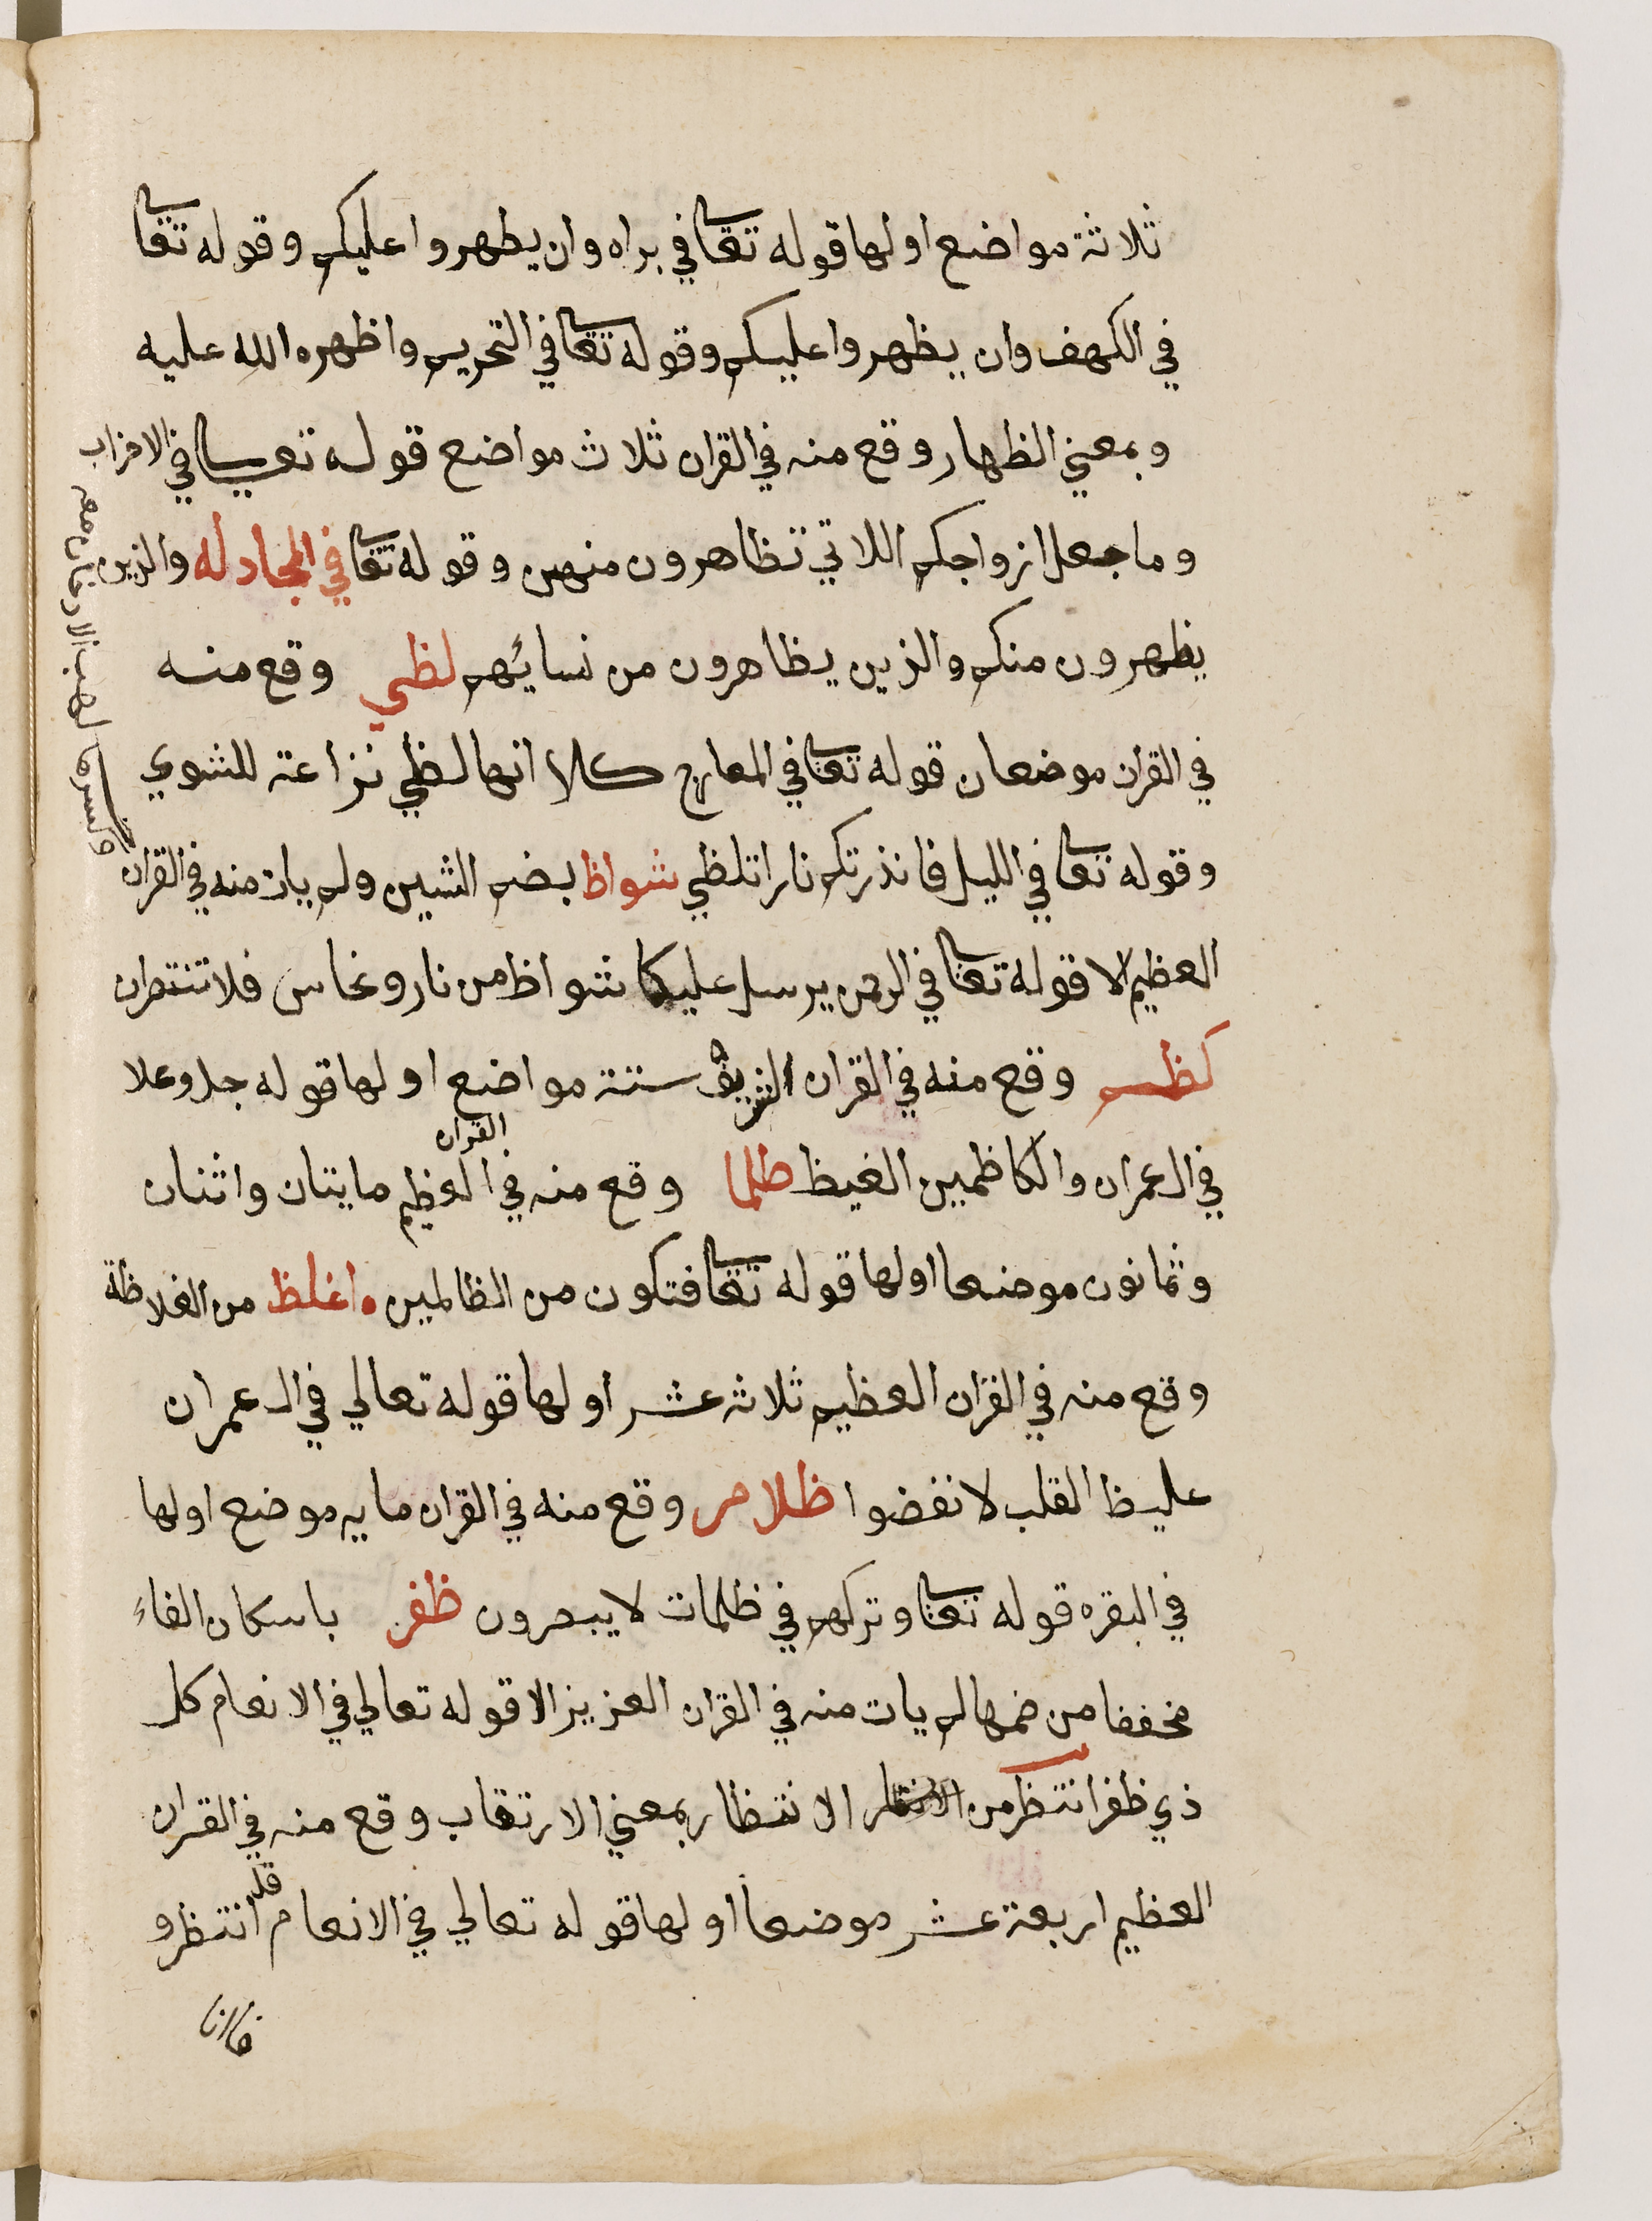 ثلاثة مواضع اولها قوله تعا في براه وان يظهروا عليكم وقوله تعا
في الكهف وان يظهروا عليكم وقوله تعا في التحريم واظهره الله عليه
وبمعني الظهار وقع منه في القران ثلاث مواضع قوله تعا في الاحزاب
وما جعل ازواجكم اللاتي تظاهرون منهن وقوله تعا في المجادله والذين
يظهرون منكم والذين يظاهرون من نسائهم لظي وقع منه
في القران موضعان قوله تعا في المعارج كلا انها لظي نزاعة للشوي
وقوله تعا في الليل فانذرتكم نارا تلظي شواظ بضم الشين ولم يات منه في القران
العظيم الا قوله تعا في الرحمن يرسل عليكما شواظ من نار ونحاس فلا تنتصران
كظم وقع منه في القران الشريف ستة مواضع اولها قوله جل وعلا
في ال عمران والكاظمين الغيظ ظلما وقع منه في القران العظيم مايتان واثنان
وثمانون موضعا اولها قوله تعا فتكون من الظالمين اغلظ من الغلاظة
وقع منه في القران العظيم ثلاثه عشر اولها قوله تعالي في ال عمران
غليظ القلب لانفضوا ظلام وقع منه في القران مايه موضع اولها
في البقره قوله تعا وتركهم في ظلمات لا يبصرون ظفر باسكان الفاء
مخففا من ضمها لم يات منه في القران العزيز الا قوله تعالي في الانعام كل
ذي ظفر انتظر من الانتظار بمعني الارتقاب وقع منه في القران
العظيم اربعة عشر موضعا اولها قوله تعالي في الانعام قل انتظرو
فانا
لهب لا دخان معه